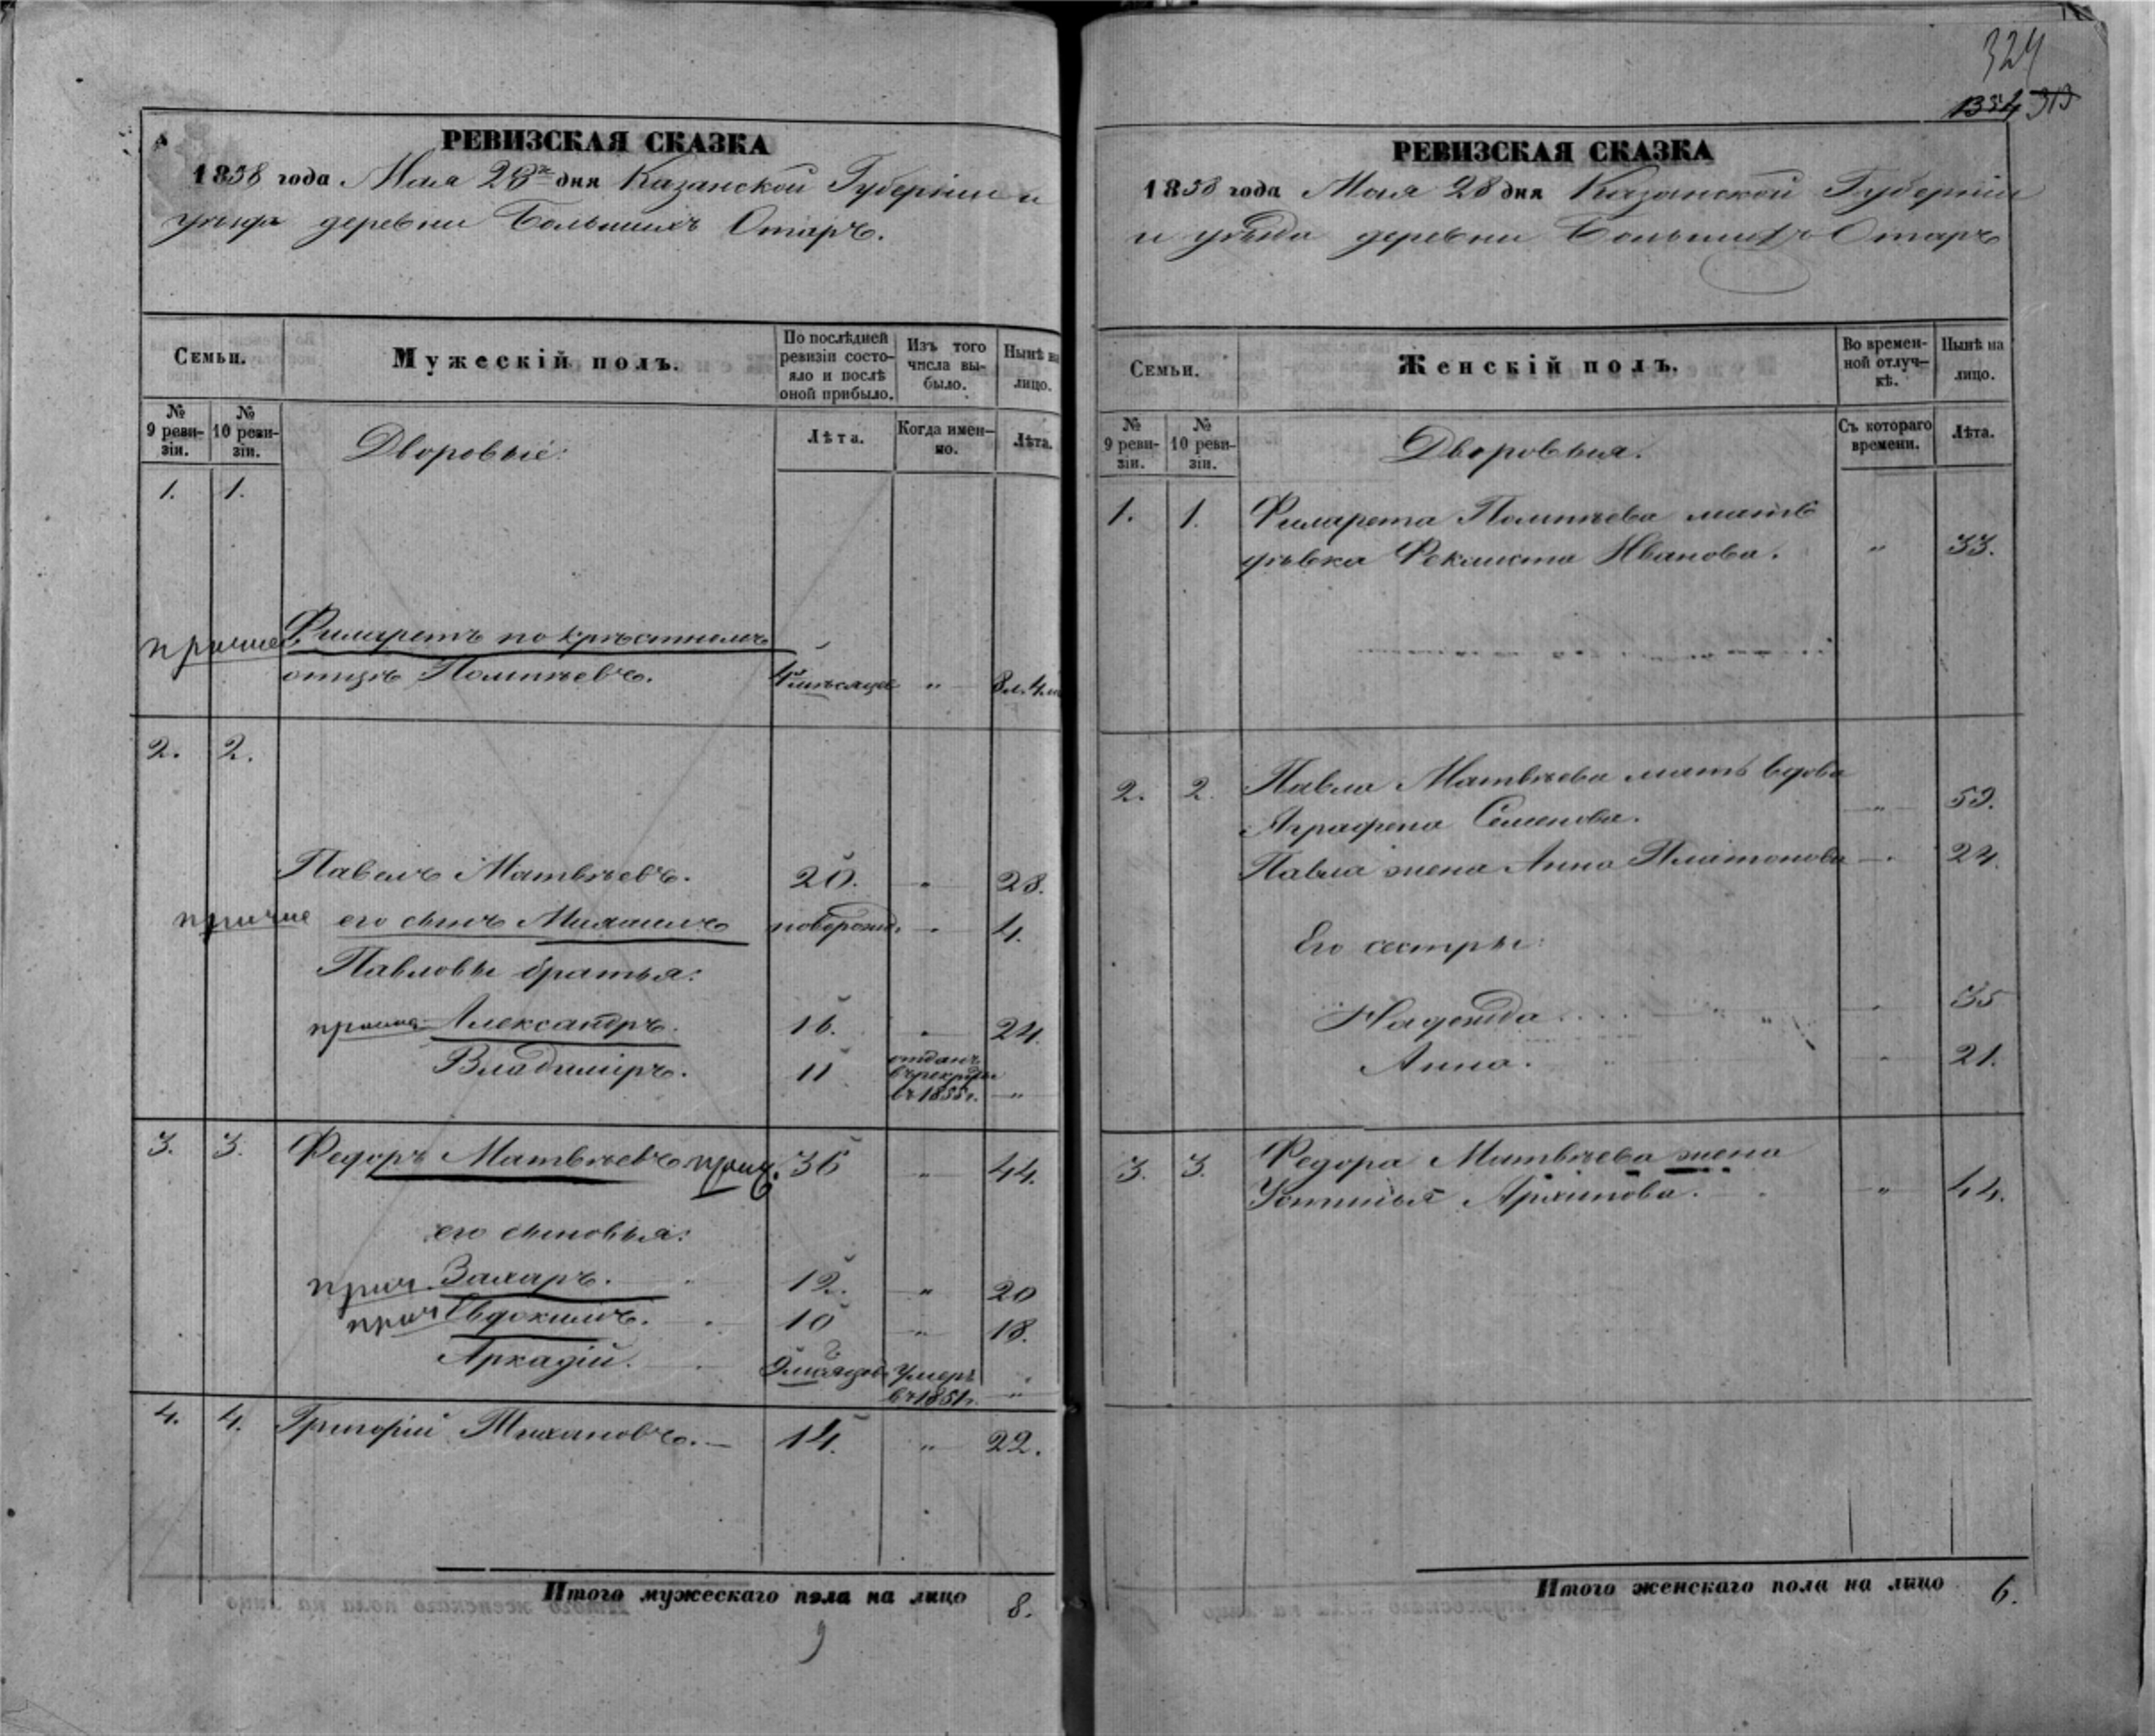 РЕВИЗСКАЯ СКАЗКА
1858 года Мая 28 дня Казанской Губерніи и
уѣзда деревни Большихъ Отаръ.
Семьи.
Мужескій полъ.
По послѣдней ревизіи состояло и послѣ оной прибыло.
Изъ того числа выбыло.
Нынѣ на лицо.
№ 9 ревизіи.
№ 10 ревизіи.
Дворовые:
Лѣта.
Когда именно.
Лѣта.
1. 1.
Филаретъ по крѣстному
отцѣ Политевъ. 4 мѣсяцев " 8 л. 4 м
2. 2.
Павелъ Матвѣевъ. 20. " 28.
его сынъ Михаилъ новорожд. " 4.
Павловы братья:
Александръ. 16. " 24.
Владиміръ. 11 отданъ
въ рекруты
въ 1855 г. "
3. 3. Федоръ Матвѣевъ 36 " 44.
его сыновья:
прич. Захаръ. 12. " 20
прич Евдокимъ. 10 " 18.
Аркадій. 9 мѣсяцовъ Умеръ
въ 1851 г. "
4. 4. Григорій Тихановъ. 14. " 22.
Итого мужескаго пола на лицо 8.
9
324
1354 313
РЕВИЗСКАЯ СКАЗКА
1858 года Мая 28 дня Казанской Губерніи
и уѣзда деревни Большихъ Отаръ
Семьи.
Женскій полъ.
Во временной отлучкѣ.
Нынѣ на лицо.
№ 9 ревизіи.
№ 10 ревизіи.
Дворовыя.
Съ котораго времени.
Лѣта.
1. 1. Филарета Политева мать
дѣвка Феклиста Иванова. " 33.
2. 2. Павла Матвѣева мать вдова
Аграфена Семенова. " 59.
Павла жена Анна Платонова " 24.
Его сестры:
Надежда " 35
Анна. " 21.
3. 3. Федора Матвѣева жена
Устинья Архипова. " 44.
Итого женскаго пола на лицо 6.